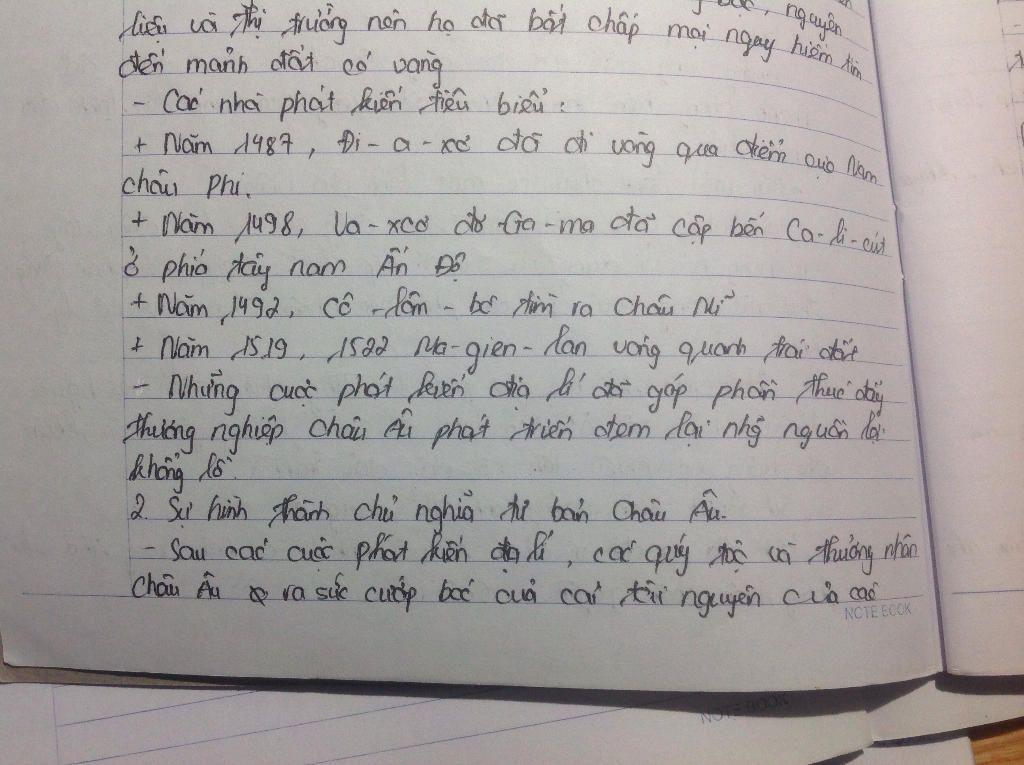 nguyên
liệu và thị trường nên họ đã bất chấp mọi nguy hiểm tìm
đến mảnh đất có vàng
- Các nhà phát kiến tiêu biểu:
+ Năm 1487, Đi-a-xơ đã đi vòng qua điểm cực Nam
châu Phi.
+ Năm 1498, Va-xcơ đơ Ga-ma đã cập bến Ca-li-cút
ở phía tây nam Ấn Độ
+ Năm 1492, Cô-lôm-bô tìm ra Châu Mĩ
+ Năm 1519, 1522 Ma-gien-lan vòng quanh trái đất
- Những cuộc phát kiến địa lí đã góp phần thúc đẩy
thương nghiệp Châu Âu phát triển đem lại nhg nguồn lợi
khổng lồ
2. Sự hình thành chủ nghĩa tư bản Châu Âu.
- Sau các cuộc phát kiến địa lí, các quý tộc và thương nhân
Châu Âu ra sức cướp bóc của cải tài nguyên của các
NOTE BOOK
NOTE BOOK